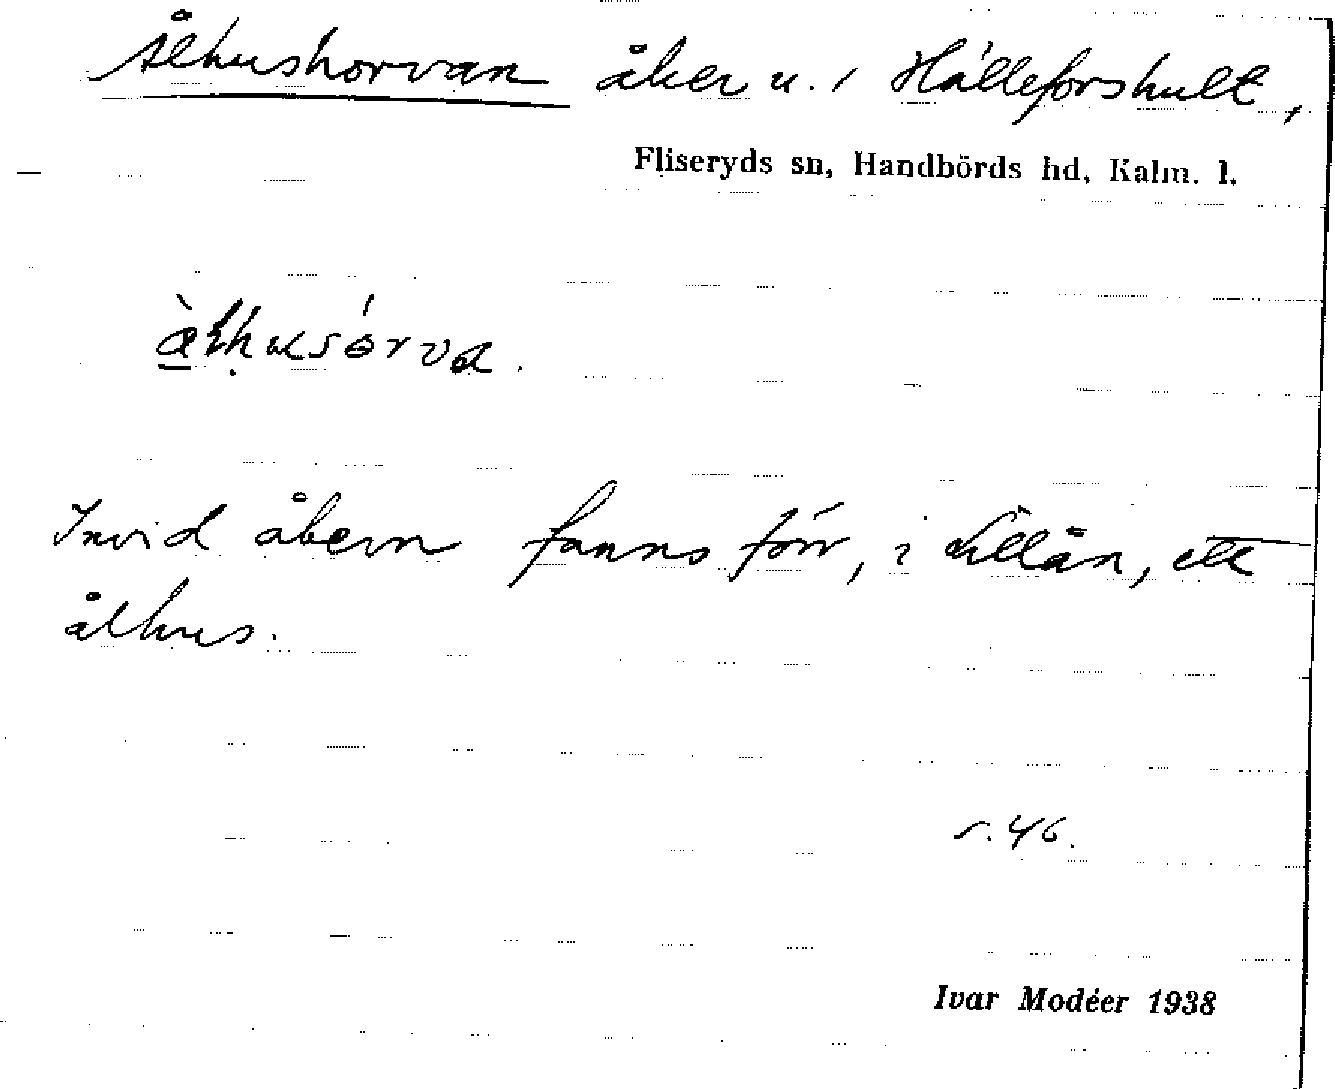 Ålhushorvan åker u. i Hälleforshult,
Fliseryds sn, Handbörds hd, Kalm. l.
Invid åkern fanns förr, i Lillån, ett
ålhus.
s. 46.
Ivar Modéer 1938